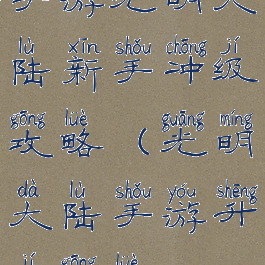 手游光明大
lù xīn shǒu chōng jí
陆新手冲级
gōng lüè guāng míng
攻略（光明
dà lù shǒu yóu shēng
大陆手游升
jí gōng lüè